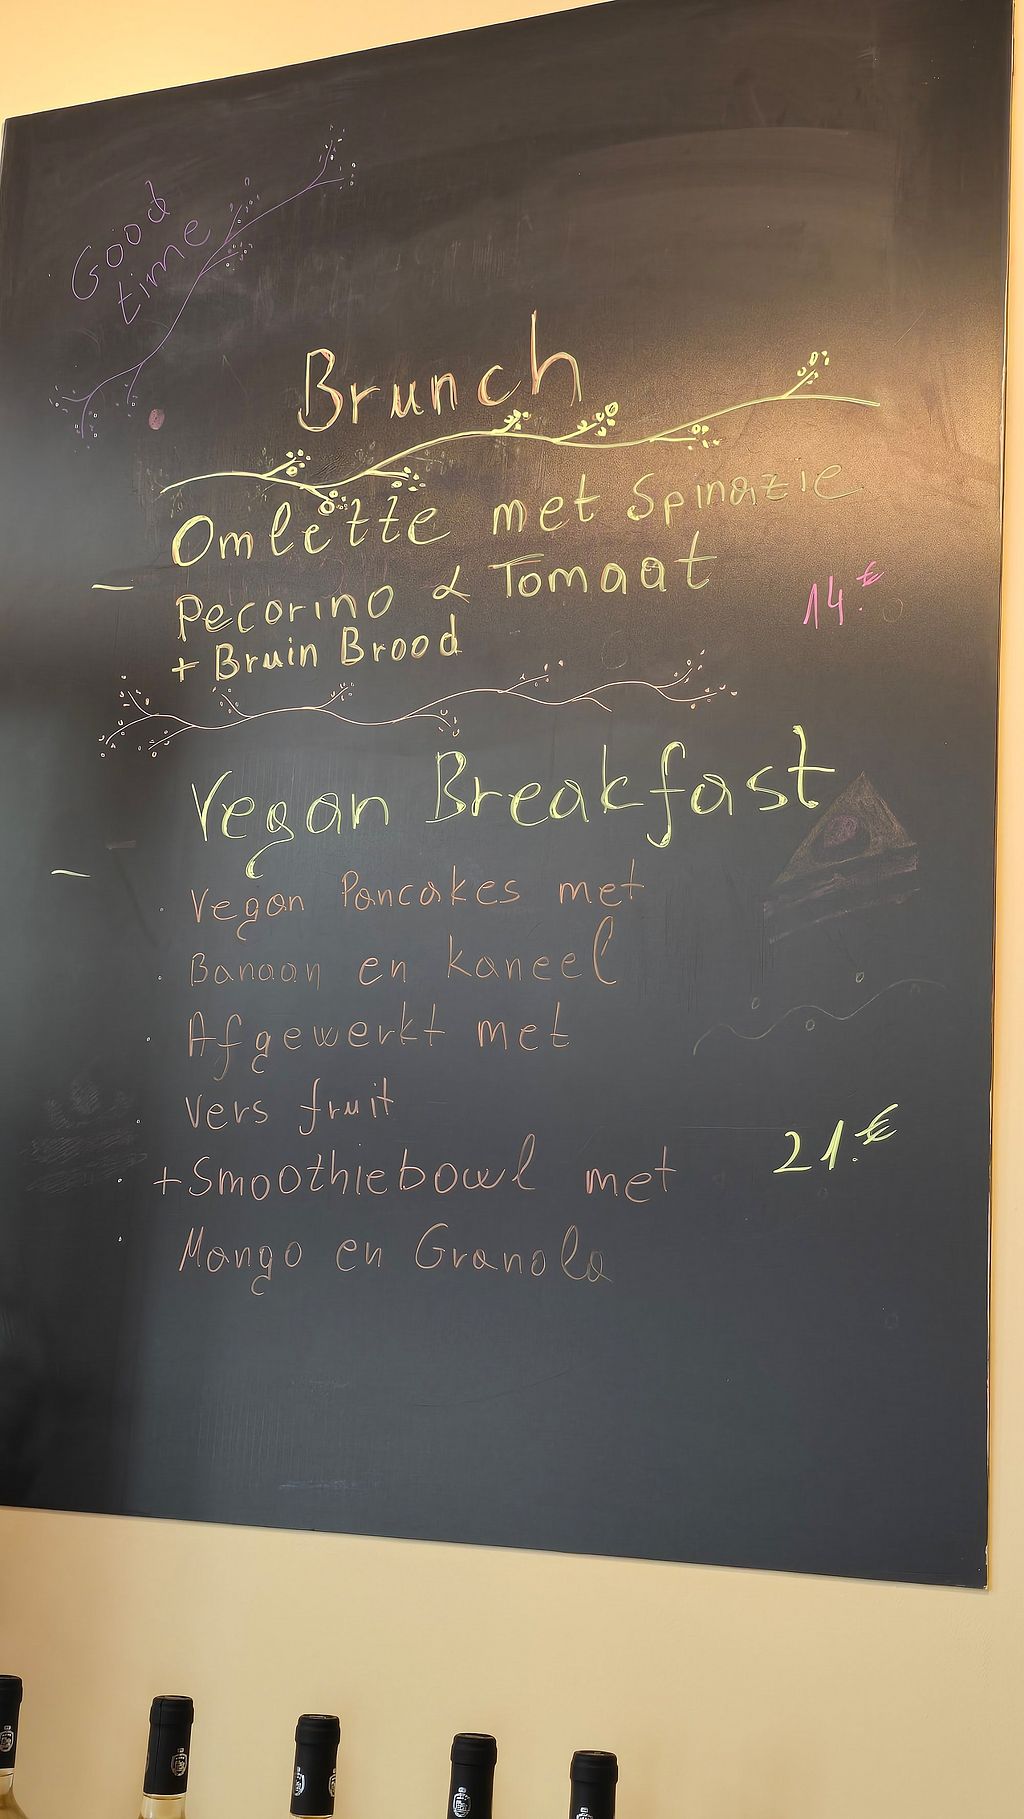 Good
time
Brunch
Omlette met Spinazie
Pecorino & Tomaat
14.€
+ Bruin Brood
Vegan Breakfast
Vegan Pancakes met
Banaan en kaneel
Afgewerkt met
vers fruit
+Smoothiebowl met
21.€
Mango en Granola